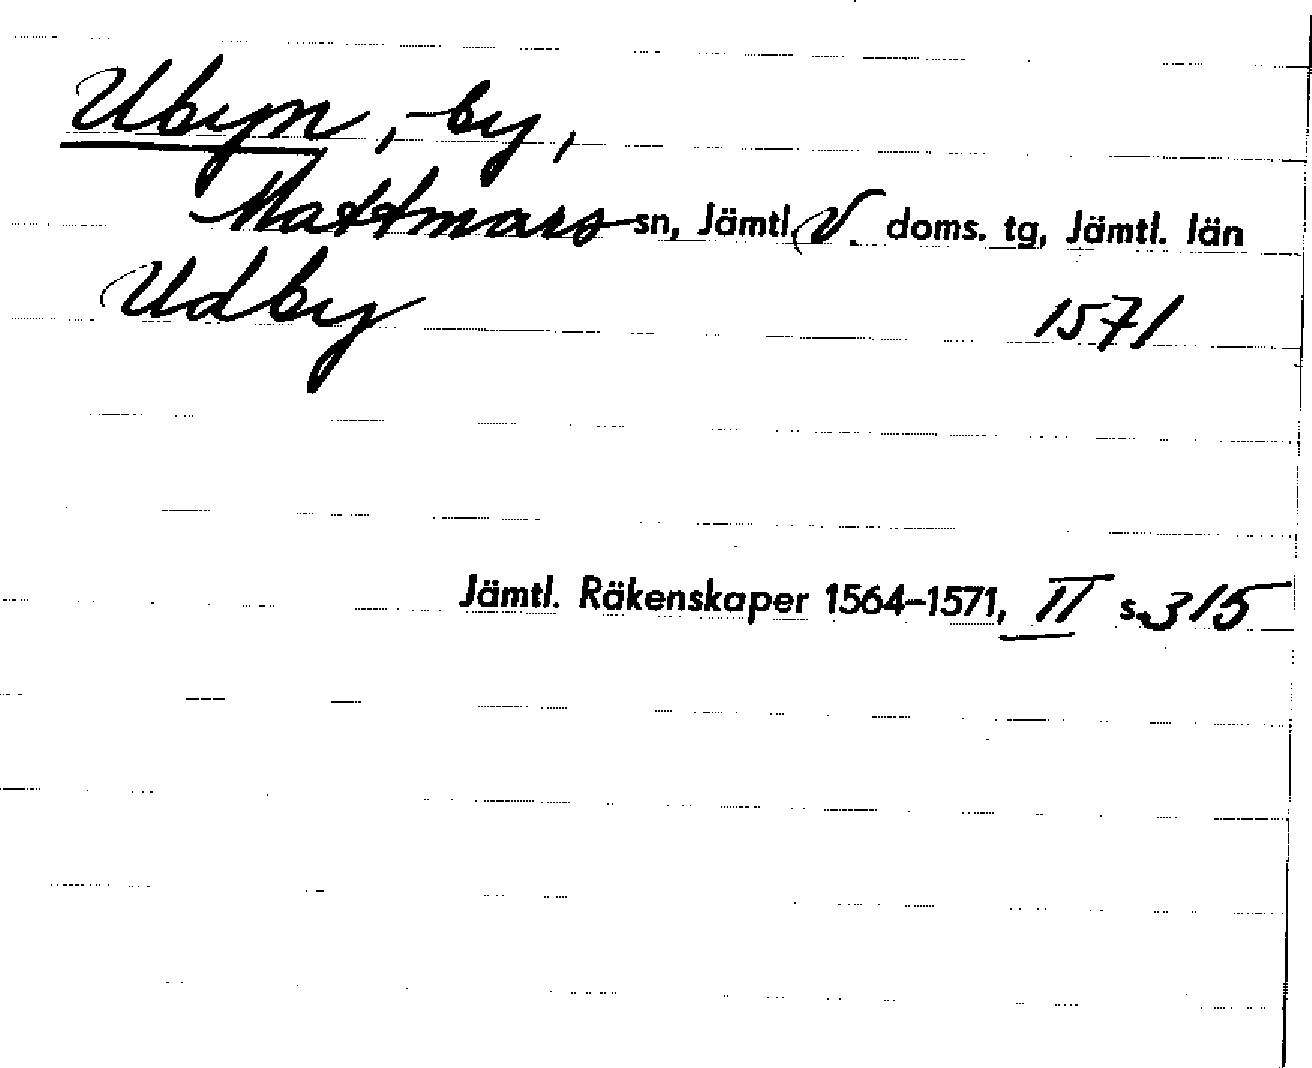 Ubyn, -by,
Mattmars sn, Jämtl. V. doms. tg, Jämtl. län
Udby 1571
Jämtl. Räkenskaper 1564–1571, II s. 315